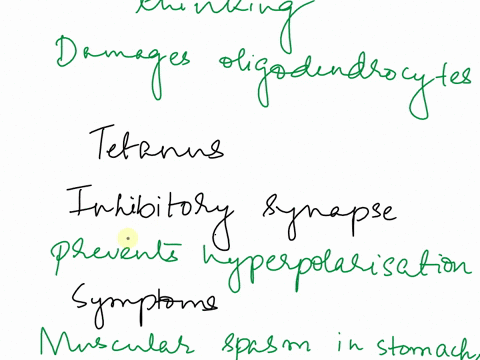 thinking
Damages oligodendrocytes
Tetanus
Inhibitory synapse
prevents hyperpolarisation
Symptoms
Muscular spasm in stomach,